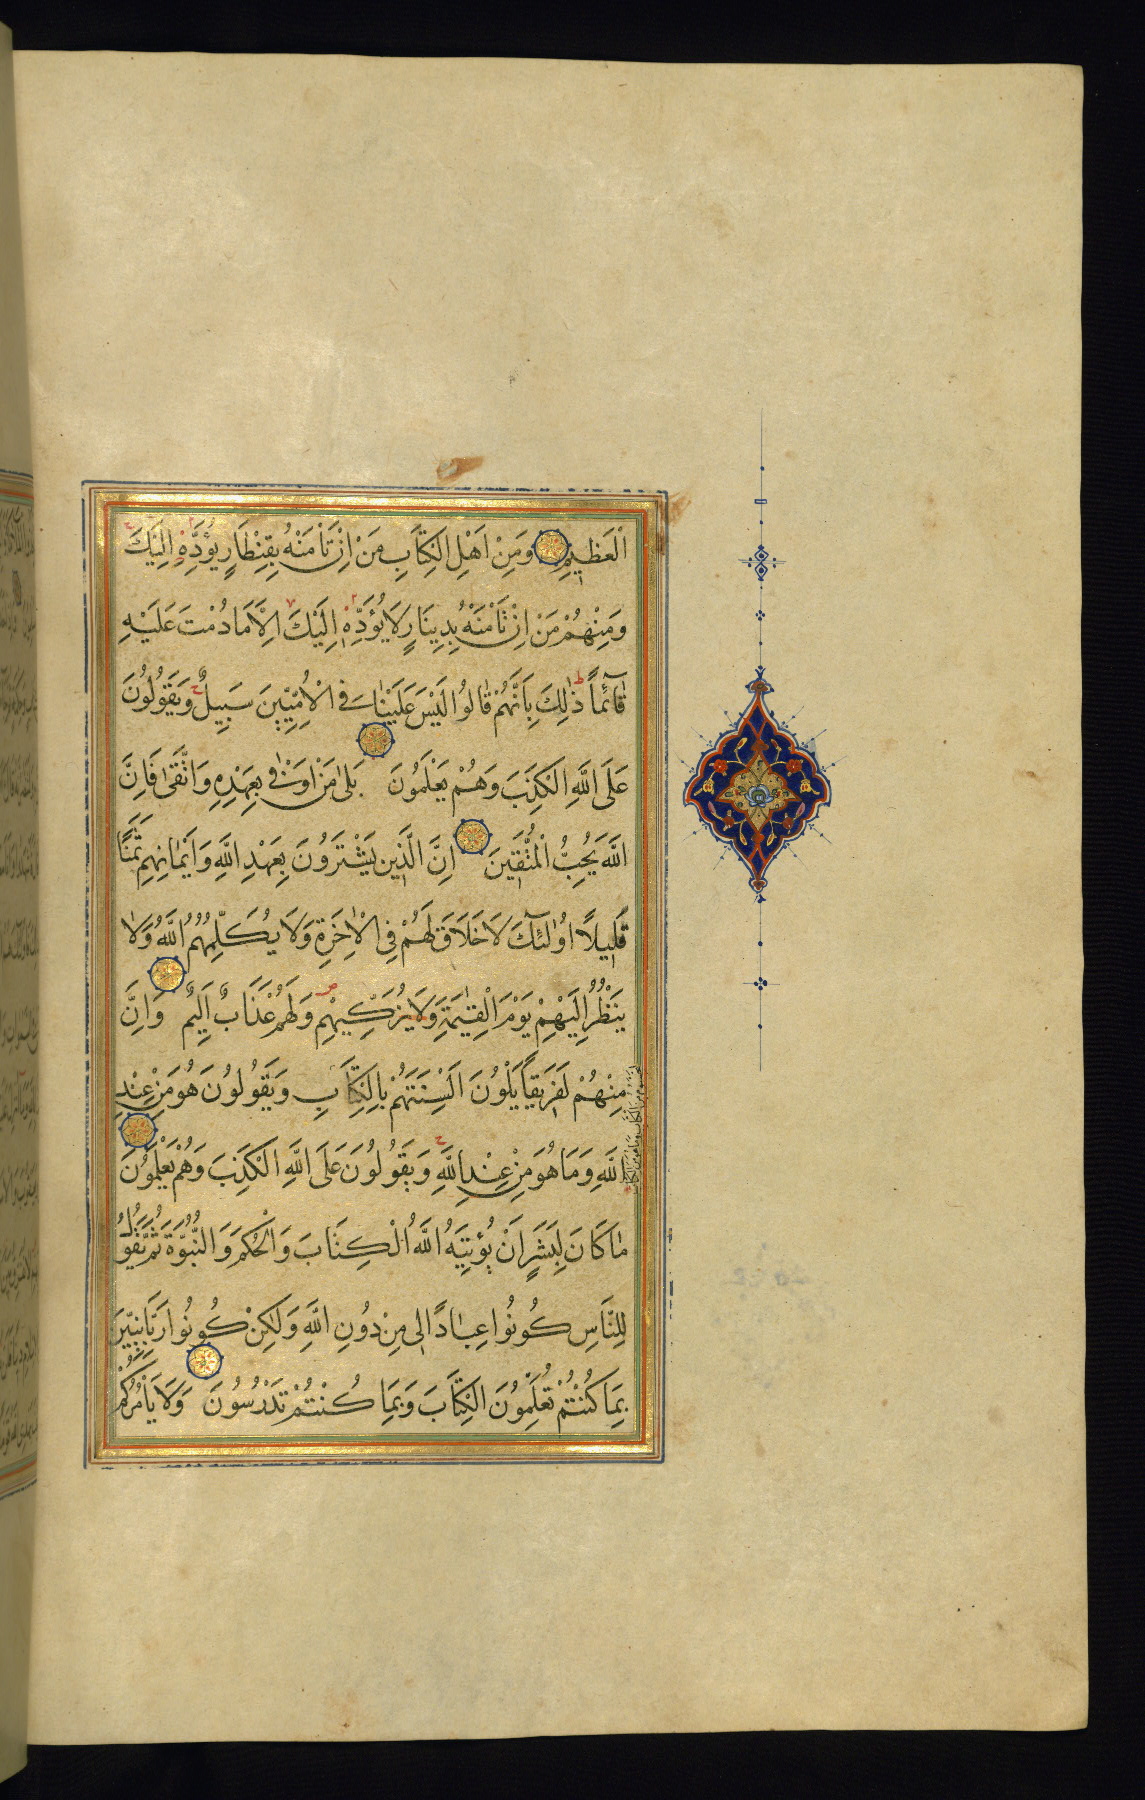 الْعَظِيمِ وَمِنْ اَهْلِ الْكِتَابِ مَنْ اِنْ تَأْمَنْهُ بِقِنْطَارٍ يُؤَدِّهِ اِلَيْكَ
وَمِنْهُمْ مَنْ اِنْ تَأْمَنْهُ بِدِينَارٍ لَا يُؤَدِّهِ اِلَيْكَ اِلَّا مَا دُمْتَ عَلَيْهِ
قَآئِماً ذٰلِكَ بِاَنَّهُمْ قَالُوا لَيْسَ عَلَيْنَا فِي الْاُمِّيِّينَ سَبِيلٌ وَيَقُولُونَ
عَلَى اللَّهِ الْكَذِبَ وَهُمْ يَعْلَمُونَ بَلٰى مَنْ اَوْفٰى بِعَهْدِهِ وَاتَّقٰى فَاِنَّ
اللَّهَ يُحِبُّ الْمُتَّقِينَ اِنَّ الَّذِينَ يَشْتَرُونَ بِعَهْدِ اللَّهِ وَاَيْمَانِهِمْ ثَمَنًا
قَلِيلًا اُولٰئِكَ لَا خَلَاقَ لَهُمْ فِي الْاٰخِرَةِ وَلَا يُكَلِّمُهُمُ اللَّهُ وَلَا
يَنْظُرُ اِلَيْهِمْ يَوْمَ الْقِيٰمَةِ وَلَا يُزَكِّيهِمْ وَلَهُمْ عَذَابٌ اَلِيمٌ وَاِنَّ
مِنْهُمْ لَفَرِيقاً يَلْوُنَ اَلْسِنَتَهُمْ بِالْكِتَابِ وَيَقُولُونَ هُوَ مِنْ عِنْدِ
لتحسبوه من الكتاب وما هو من الكتاب
اللَّهِ وَمَا هُوَ مِنْ عِنْدِ اللَّهِ وَيَقُولُونَ عَلَى اللَّهِ الْكَذِبَ وَهُمْ يَعْلَمُونَ
مَا كَانَ لِبَشَرٍ اَنْ يُؤْتِيَهُ اللَّهُ الْكِتَابَ وَالْحُكْمَ وَالنُّبُوَّةَ ثُمَّ يَقُولَ
لِلنَّاسِ كُونُوا عِبَادًا لِي مِنْ دُونِ اللَّهِ وَلٰكِنْ كُونُوا رَبَّانِيِّينَ
بِمَا كُنْتُمْ تُعَلِّمُونَ الْكِتَابَ وَبِمَا كُنْتُمْ تَدْرُسُونَ وَلَا يَأْمُرَكُمْ